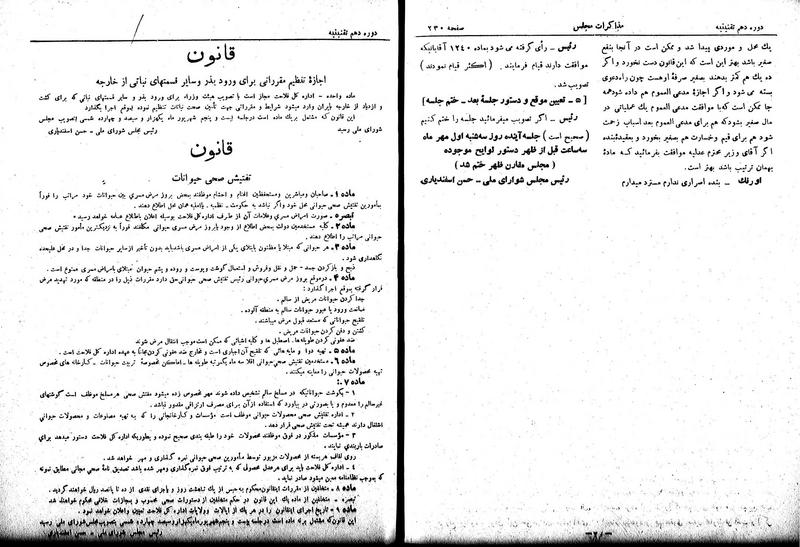 دوره دهم تقنینیه
مذاکرات مجلس
صفحه ۲۳۰
یك محل و موردی پیدا شد و ممکن است در آنجا بنفع
صغیر باشد بهتر این است که این قانون دست نخورد و اگر
ده یك هم کمتر بدهند بصغیر صرفهٔ اوهست چون راه دعوی
بسته می شود و اگر اجازهٔ مدعی العموم هم داده شود همه
جا ممکن است که با موافقت مدعی العموم یك عملیاتی در
مال صغیر بشود که هم برای مدعی العموم بعد اسباب زحمت
شود هم برای قیم و خسارت هم بصغیر بخورد و بعقیده بنده
اگر آقای وزیر محترم عدلیه موافقت بفرمائید که مادهٔ
بهمان ترتیب باشد بهتر است.
اورنك ـ بنده اصراری ندارم مسترد میدارم
رئیس ـ رأی گرفته می شود بماده ۱۲۴۰ آقایانیکه
موافقت دارند قیام فرمایند . ( اکثر قیام نمودند )
تصویب شد.
[ ۵ ـ تعیین موقع و دستور جلسهٔ بعد ـ ختم جلسه ]
رئیس ـ اگر تصویب میفرمائید جلسه را ختم کنیم
( صحیح است ) جلسه آینده روز سه شنبه اول مهر ماه
سه ساعت قبل از ظهر دستور لوایح موجوده
( مجلس مقارن ظهر ختم شد )
رئیس مجلس شورای ملی ـ حسن اسفندیاری
دوره دهم تقنینیه
قانون
اجازهٔ تنظیم مقرراتی برای ورود بذر وسایر قسمتهای نباتی از خارجه
ماده واحده - اداره کل فلاحت مجاز است با تصویب هیئت وزراء برای ورود بذر و سایر قسمتهای نباتی که برای کشت
و ازدیاد از خارجه بایران وارد میشود شرایط و مقرراتی جهت تأمین صحت نباتات تنظیم نموده بموقع اجرا بگذارد
این قانون که مشتمل بریك ماده است درجلسه بیست و پنجم شهریور ماه یکهزار و سیصد و چهارده شمسی بتصویب مجلس
شورای ملی رسید
رئیس مجلس شورای ملی - حسن اسفندیاری
قانون
تفتیش صحی حیوانات
ماده ۱ - صاحبان ومباشرین ومستحفظین اغنام و احشام موظفند بعض بروز مرض مسری بین حیوانات خود مراتب را فوراً
بمأمورین تفتیش صحی حیوانی محل خود واگر نباشد به حکومت - نظمیه - یاامنیه همان محل اطلاع دهند .
تبصره - صورت امراض مسری وعلامات آن از طرف اداره کل فلاحت بوسیله اعلان باطلاع عامه خواهد رسید
ماده ۲ - کلیه مستخدمین دولت بمحض اطلاع از وجود یابروز مرض مسری حیوانی مکلفند فوراً به نزدیکترین مأمور تفتیش صحی
حیوانی مراتب را اطلاع دهند .
ماده ۳ - هر حیوانی که مبتلا یا مظنون بابتلای یکی از امراض مسری باشد باید بدون تأخیر از سایر حیوانات جدا و در محل علیحده
نگاهداری شود .
ذبح و باز کردن جسد - حمل و نقل وفروش و استعمال گوشت وپوست و روده و پشم حیوان مبتلای بامراض مسری ممنوع است .
ماده ۴ - درموقع بروز مرض مسری حیوانی رئیس تفتیش صحی حیوانی حق دارد مقررات ذیل را در منطقه که مورد تهدید مرض
قرار گرفته بموقع اجرا گذارد :
جدا کردن حیوانات مریض از سالم .
ممانعت ورود یا عبور حیوانات سالم به منطقه آلوده .
تلقیح حیواناتی که مستعد قبول مرض میباشند .
کشتن و دفن کردن حیوانات مریض .
ضد عفونی کردن طویله ها . اصطبل ها و کلیه اشیائی که ممکن است موجب انتقال مرض شوند
ماده ۵ - تهیه دوا و مایه هائی که تلقیح آن اجباری است و مخارج ضد عفونی کردن مجاناً به عهده اداره کل فلاحت است .
ماده ۶ - مستخدمین تفتیش صحی حیوانی اقلا سه ماه یکمرتبه طویله ها - اماکن مخصوصهٔ تربیت حیوانات - کارخانه های مخصوص
تهیه محصولات حیوانی را معاینه میکنند .
ماده ۷ -
۱ - بگوشت حیواناتیکه در مسلخ سالم تشخیص داده شوند مهر مخصوص زده میشود مفتش صحی هر مسلخ موظف است گوشتهای
غیر سالم را معدوم و یا بصورتی در بیاورد که استفاده از آن برای مصرف ارتزاقی مقدور نباشد .
۲ - اداره تفتیش صحی حیوانی موظف است مؤسسات و کارخانجاتی را که به تهیه مصنوعات و محصولات حیوانی
اشتغال دارند همیشه تحت تفتیش صحی قرار دهد .
۳ - مؤسسات مذکور در فوق موظفند محصولات خود را طبقه بندی صحیح نموده و بطوریکه اداره کل فلاحت دستور میدهد برای
صادرات باربندی نمایند .
روی لفاف هر بسته از محصولات مزبور توسط مأمورین صحی حیوانی نمره گذاری و مهر خواهد شد .
۴ - اداره کل فلاحت باید برای هر عدل محصولی که به ترتیب فوق نمره گذاری ومهر شده باشد تصدیق نامهٔ صحی مجانی مطابق نمونه
که بموجب نظامنامه معین میشود صادر نماید .
ماده ۸ - متخلفین از مقررات این قانون محکوم به حبس از یك تا هشت روز و یا جزای نقدی از ده تا پانصد ریال خواهند گردید .
تبصره - متخلفین از ماده یك این قانون در حکم متخلفین از دستورات صحی محسوب و بمجازات خلافی محکوم خواهند شد
ماده ۹ - تاریخ اجرای این قانون را در هر یك از ایالات وولایات اداره کل فلاحت تعیین واعلان خواهد نمود .
این قانون که مشتمل بر نه ماده است در جلسه بیست و پنجم شهریور ماه یکهزار و سیصد و چهارده شمسی بتصویب مجلس شورای ملی رسید
رئیس مجلس شورای ملی - حسن اسفندیاری